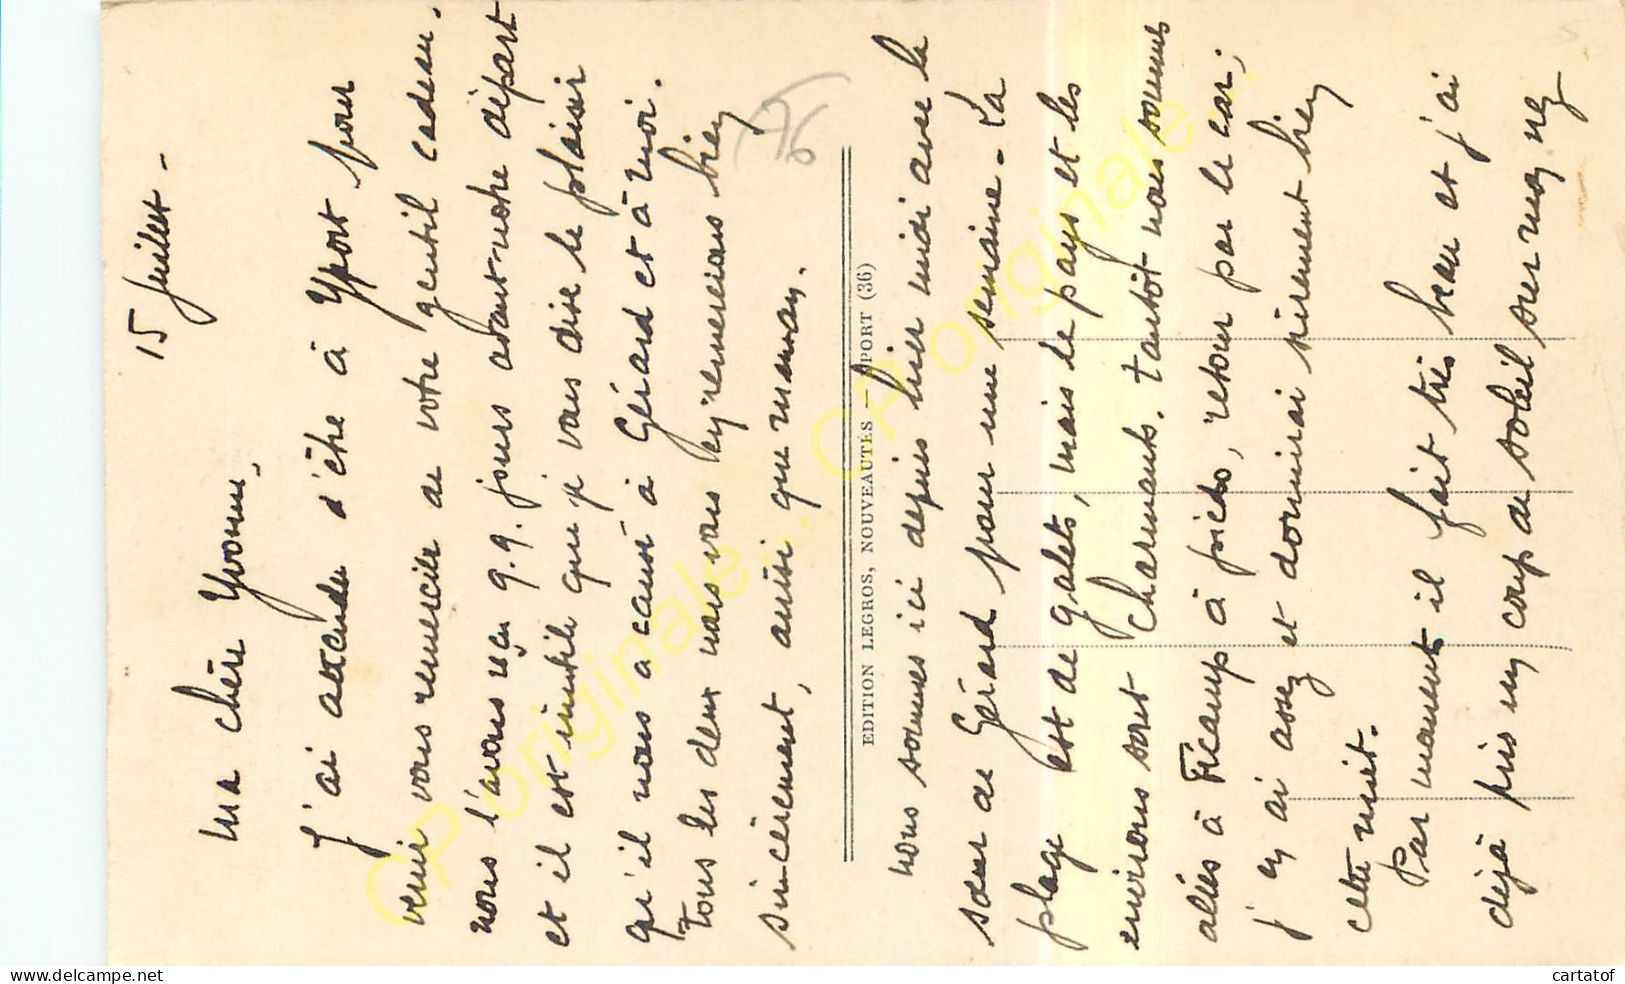 15 Juillet -
Ma chère Yvonne,
J'ai attendu d'être à Yport pour
venir vous remercier de votre gentil cadeau.
nous l'avons reçu q.q. jours avant notre départ
et il est inutile que je vous dise le plaisir
qu'il nous a causé à Gérard et à moi.
Tous les deux nous vous en remercions bien
sincèrement, ainsi que maman.
EDITION LEGROS, NOUVEAUTÉS — YPORT (36)
nous sommes ici depuis hier midi avec la
sœur de Gérard pour une semaine - La
plage est de galets, mais le pays et les
environs sont charmants. tantôt nous sommes
allés à Fécamp à pieds, retour par le car;
j'en ai assez et dormirai sûrement bien
cette nuit.
Par moment il fait très beau et j'ai
déjà pris un coup de soleil sur mon nez
CP originale
CP originale
cartatof
delcampe.net